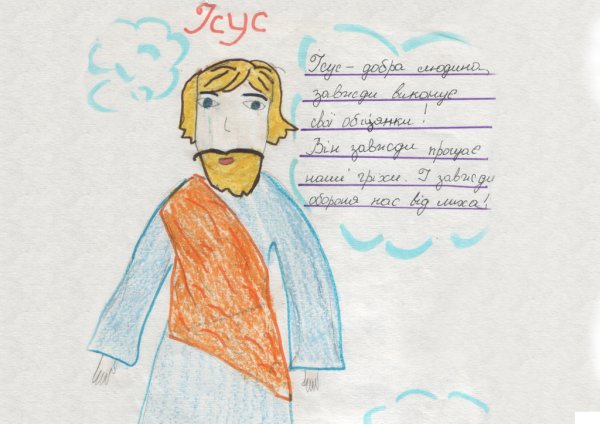 Ісус
Ісус - добра людина,
завжди виконує
свої обіцянки!
Він завжди прощає
наші гріхи. І завжди
обороня нас від лиха!